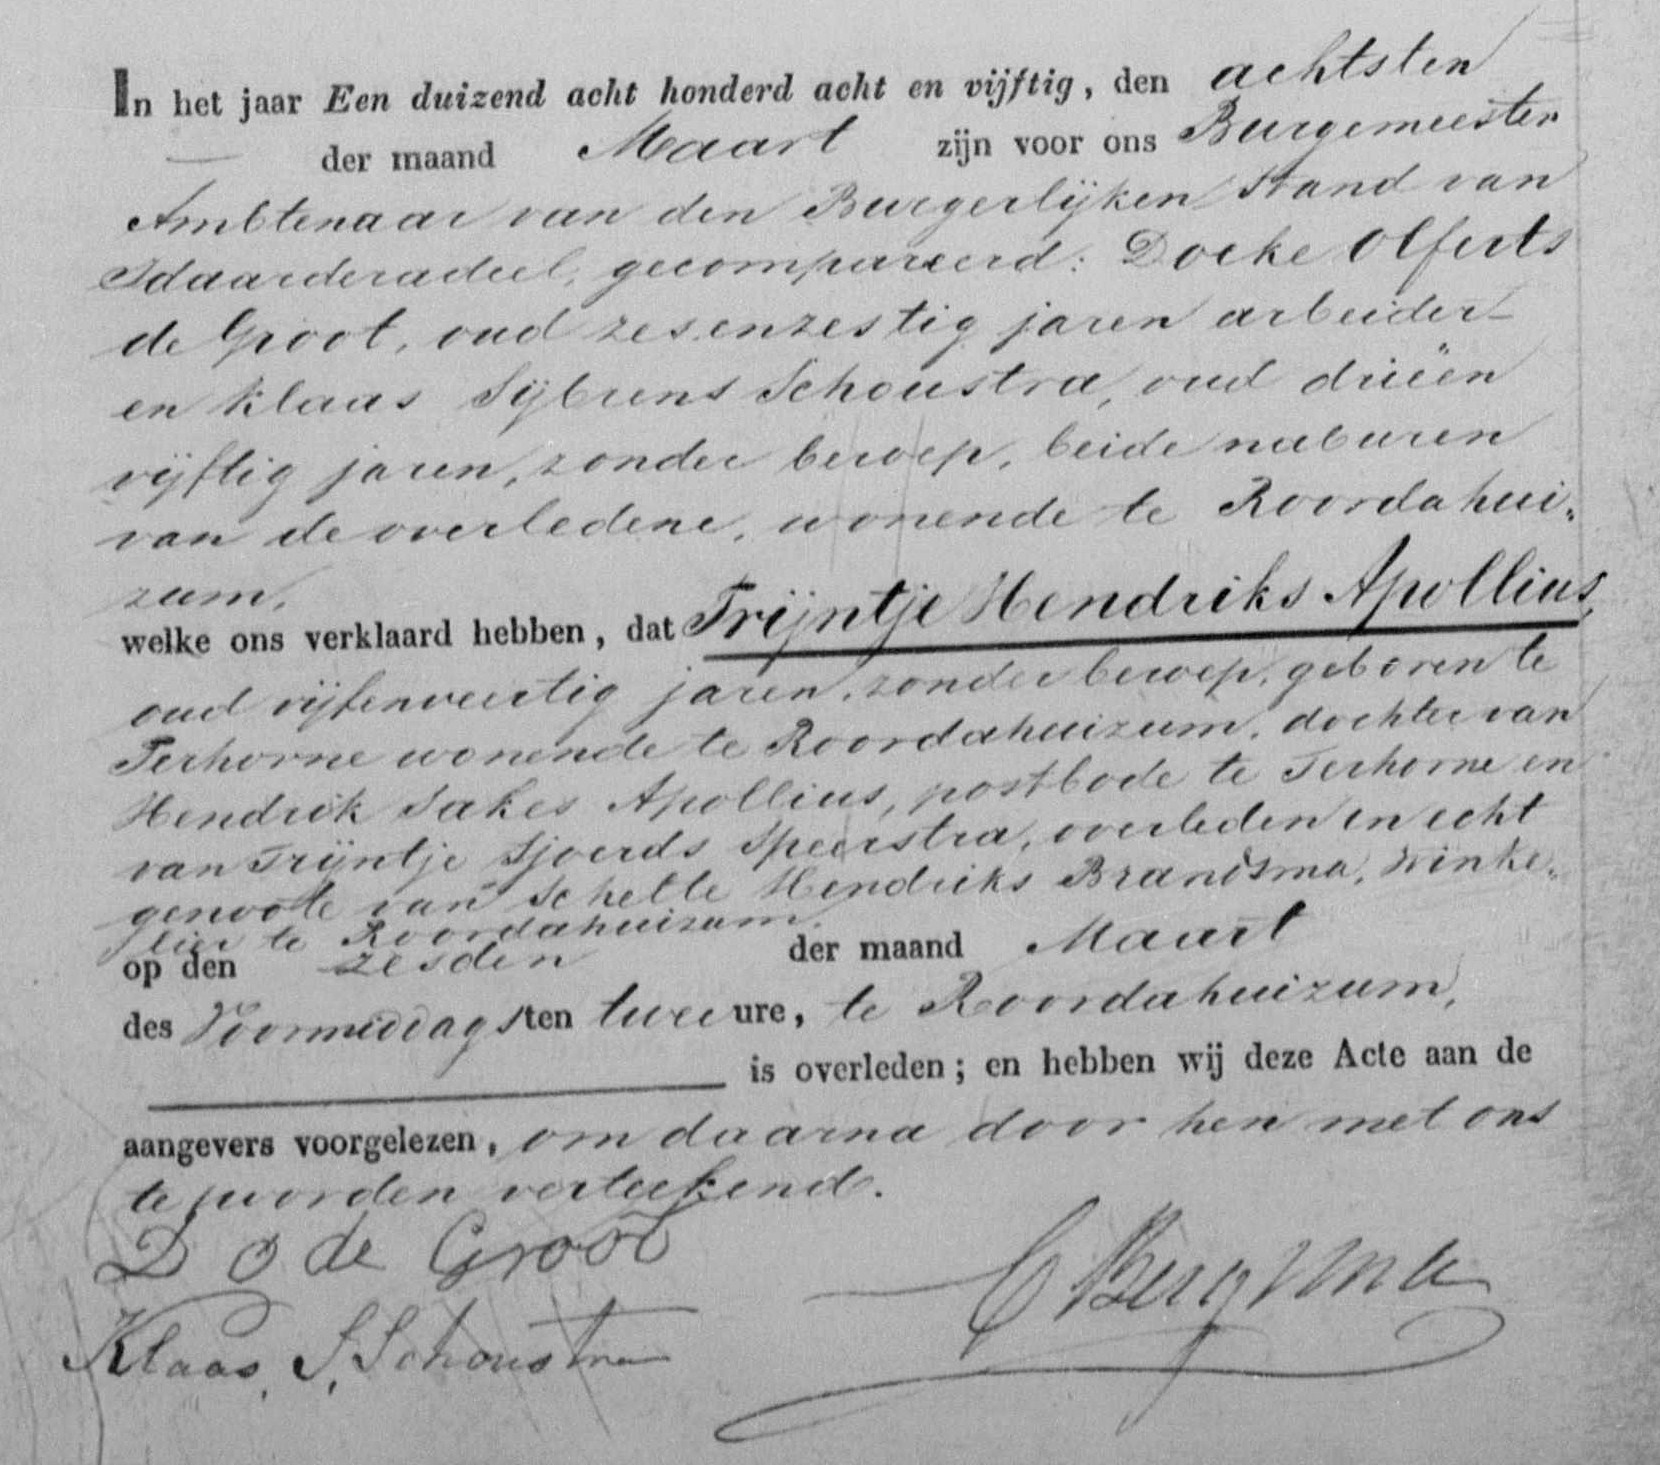 In het jaar Een duizend acht honderd acht en vijftig, den achtsten
— der maand Maart zijn voor ons Burgemeester
Ambtenaar van den Burgerlijken Stand van
Idaarderadeel, gecompareerd: Doeke Olferts
de Groot, oud zesenzestig jaren arbeider
en Klaas Sijbrens Schoustra, oud drieën
vijftig jaren, zonder beroep, beide naburen
van de overledene, wonende te Roordahui„
zum,
welke ons verklaard hebben, dat Trijntje Hendriks Apollius,
oud vijfenveertig jaren, zonder beroep, geboren te
Terhorne wonende te Roordahuizum, dochter van
Hendrik Sakes Apollius, postbode te Terhorne en
van Trijntje Sjoerds Speerstra, overleden en echt
genoote van Schelte Hendriks Brandsma, winke„
lier te Roordahuizum,
op den zesden der maand Maart
des Voormiddags ten twee ure, te Roordahuizum,
is overleden; en hebben wij deze Acte aan de
aangevers voorgelezen, om daarna door hen met ons
te worden verteekend.
D O de Groot
C Bergsma
Klaas, S, Schoustra